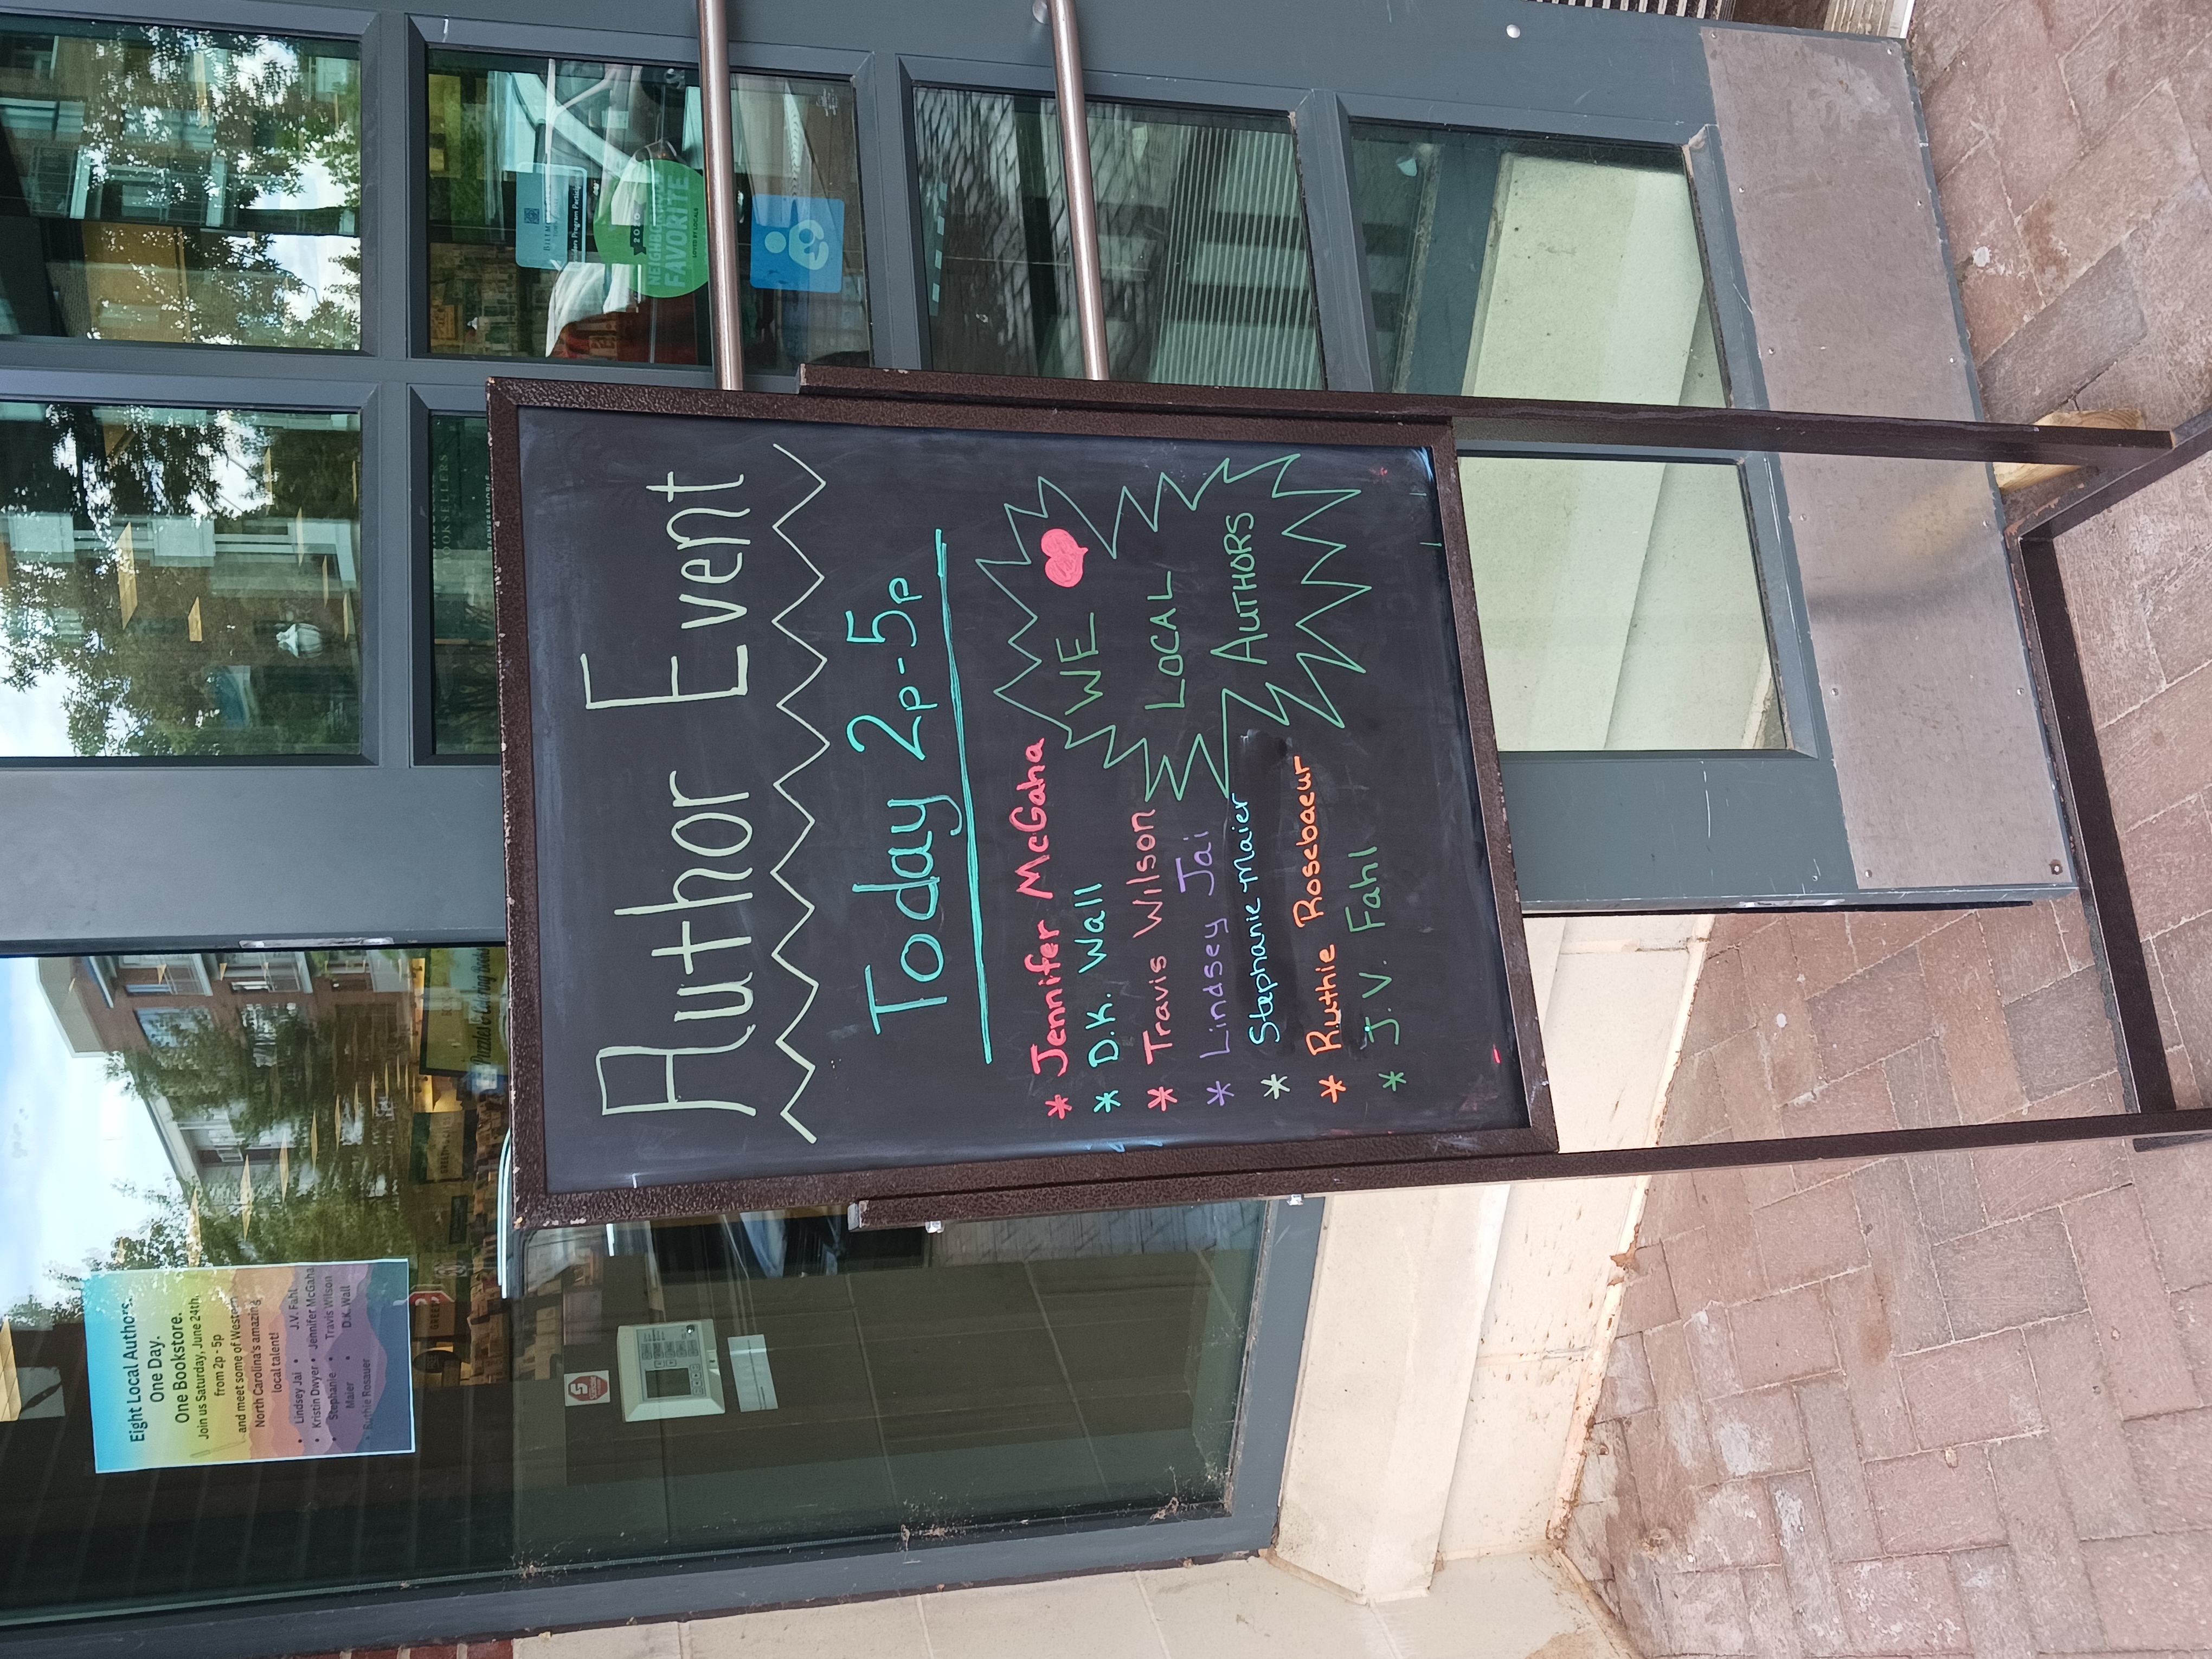 Eight Local Authors.
One Day.
One Bookstore.
Join us Saturday, June 24th,
from 2p - 5p
and meet some of Western
North Carolina's amazing
local talent!
• Lindsey Jai • J.V. Fahl
• Kristin Dwyer • Jennifer McGaha
• Stephanie • Travis Wilson
Maier • D.K. Wall
• Ruthie Rosauer
GREETING CARDS
Puzzles & Coloring Books
BOOKSELLERS
BARNES & NOBLE
2020
NEIGHBORHOOD
FAVORITE
LOVED BY LOCALS
Author Event
Today 2p-5p
* Jennifer McGaha
* D.K. Wall
* Travis Wilson
* Lindsey Jai
* Stephanie Maier
* Ruthie Rosebaeur
* J.V. Fahl
WE ♥
LOCAL
AUTHORS